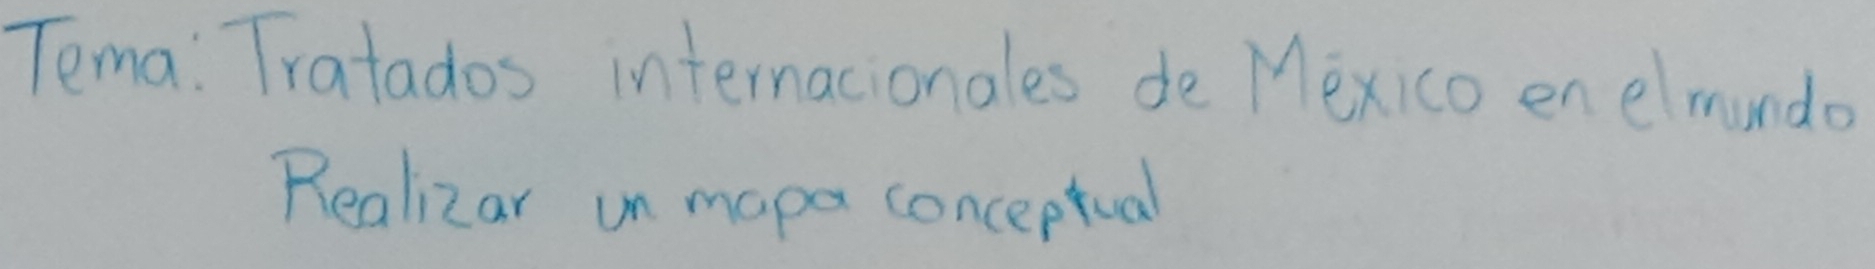 Tema: Tratados internacionales de México en el mundo
Realizar un mapa conceptual